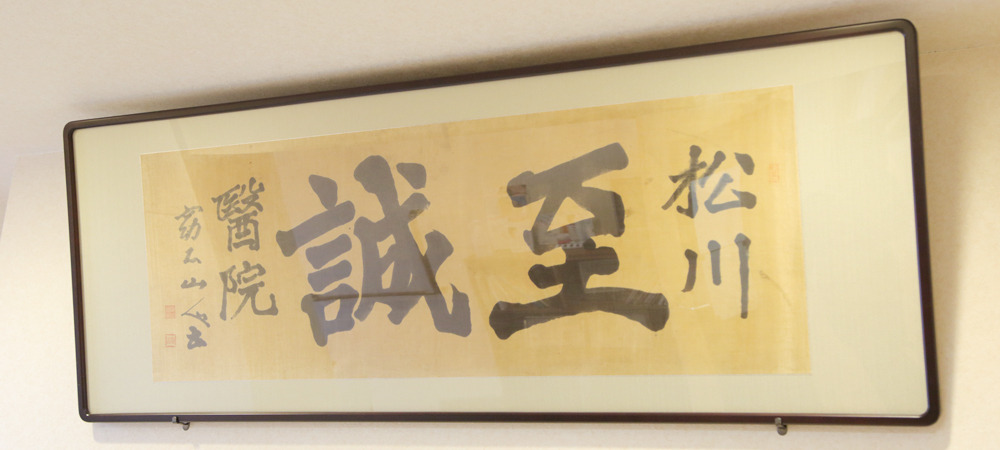 松川
至誠
醫院
山人書